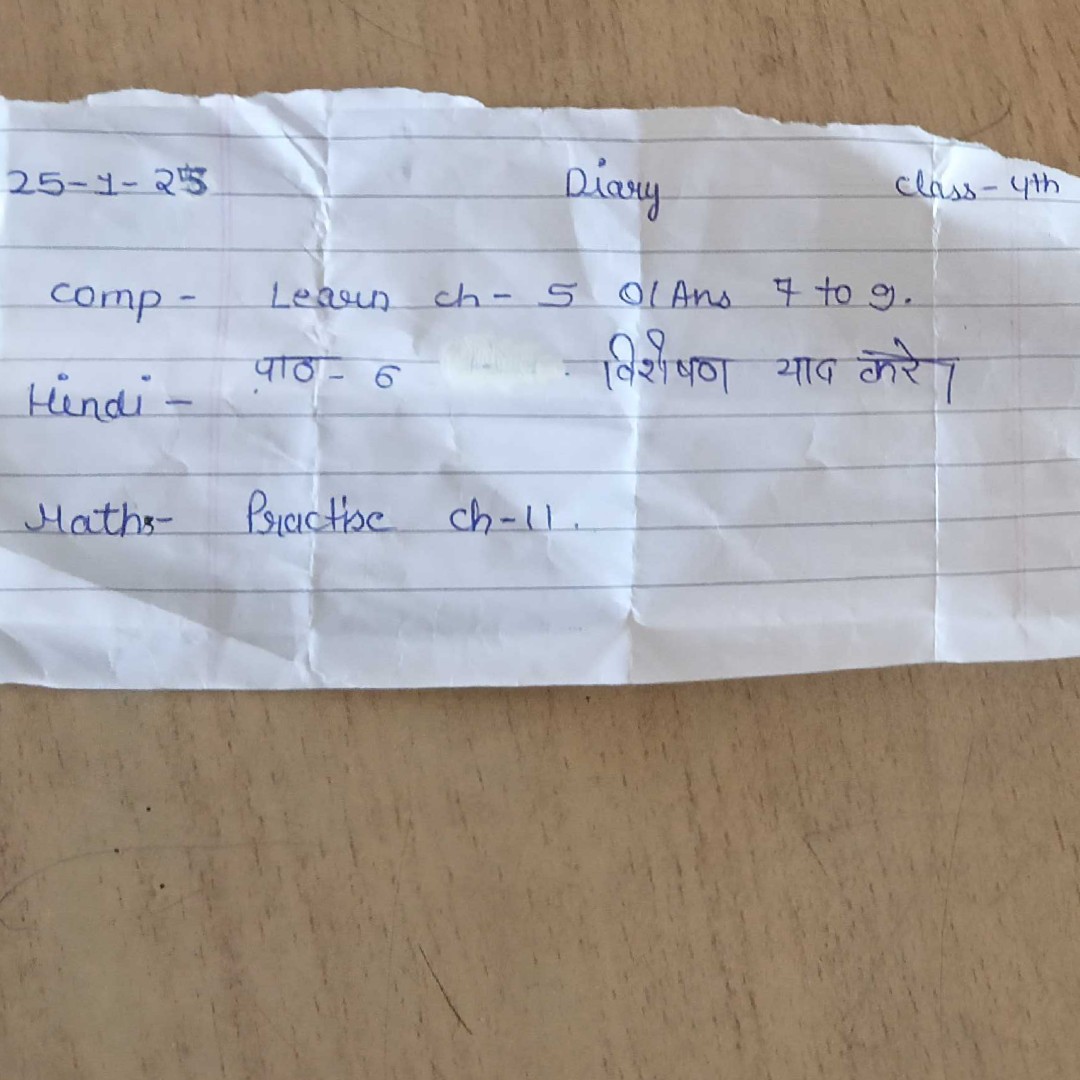 25-1-25 Diary class-4th
comp - Learn ch - 5 Q/Ans 7 to 9.
Hindi - पाठ - 6 विशेषण याद करे।
Maths- Practise ch-11.